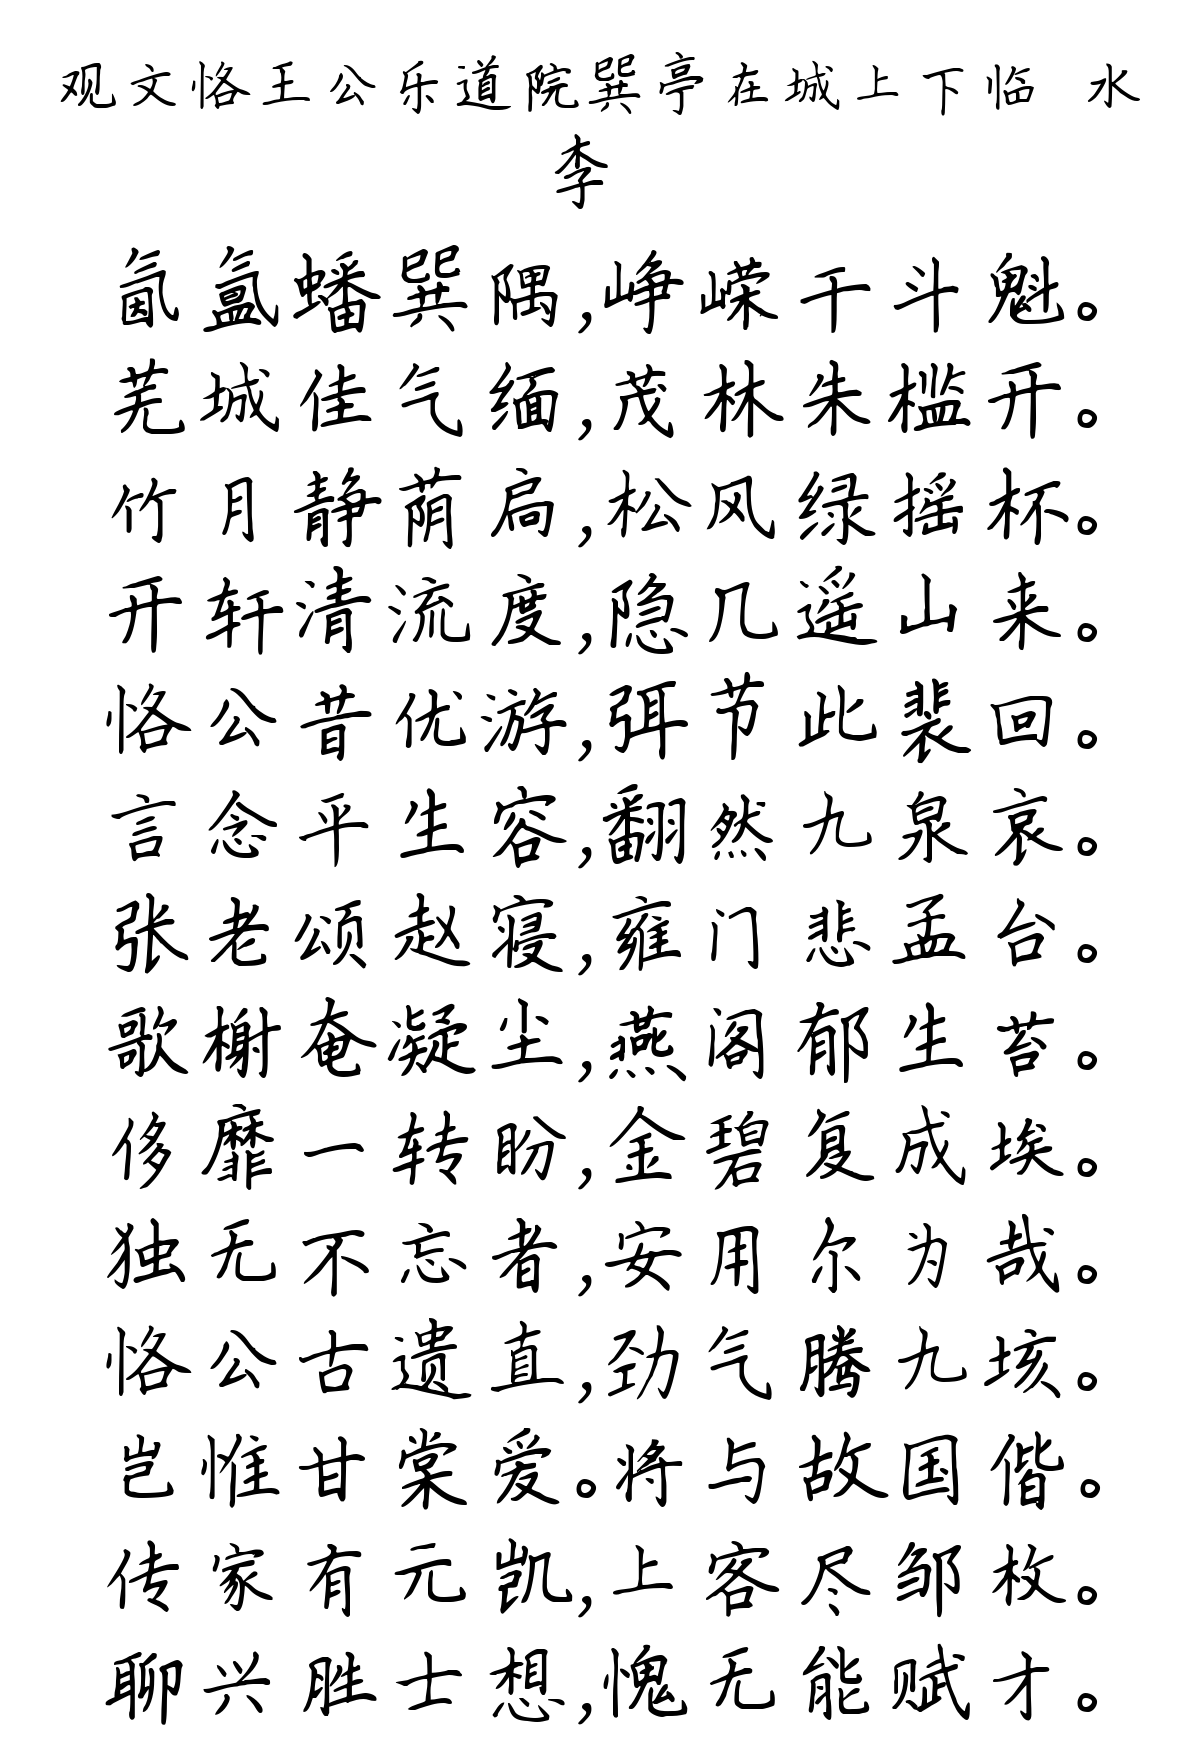 观文恪王公乐道院巽亭在城上下临 水
李
氤氲蟠巽隅,峥嵘干斗魁。
芜城佳气缅,茂林朱槛开。
竹月静荫扃,松风绿摇杯。
开轩清流度,隐几遥山来。
恪公昔优游,弭节此裴回。
言念平生容,翻然九泉哀。
张老颂赵寝,雍门悲孟台。
歌榭奄凝尘,燕阁郁生苔。
侈靡一转盼,金碧复成埃。
独无不忘者,安用尔为哉。
恪公古遗直,劲气腾九垓。
岂惟甘棠爱。将与故国偕。
传家有元凯,上客尽邹枚。
聊兴胜士想,愧无能赋才。